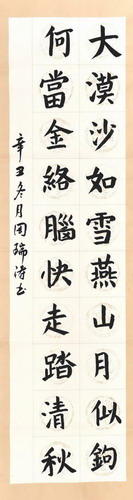 大漠沙如雪燕山月似鉤
何當金絡腦快走踏清秋
辛丑冬月周瑞濤書